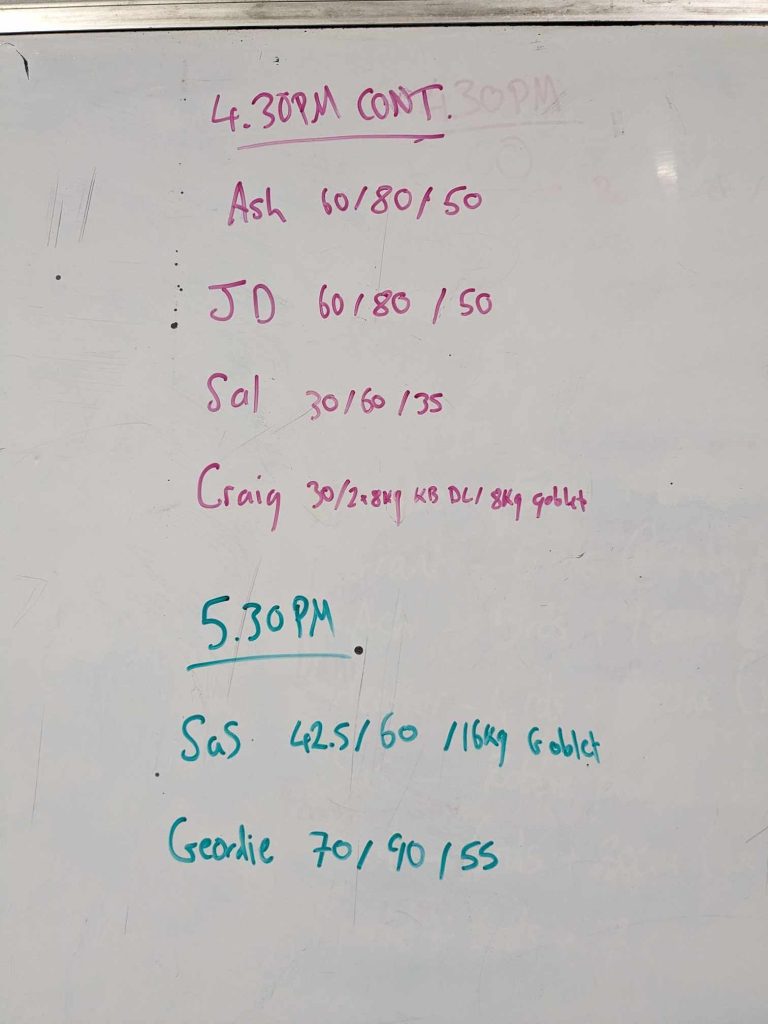 4.30PM CONT.
Ash 60/80/50
JD 60/80/50
Sal 30/60/35
Craig 30/2x8kg KB DL/8Kg goblet
5.30PM
SaS 42.5/60/16kg Goblet
Geordie 70/90/55